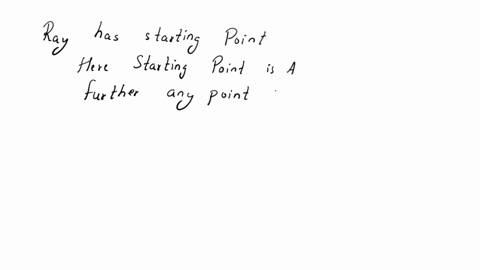 Ray has starting Point
Here Starting Point is A
further any point